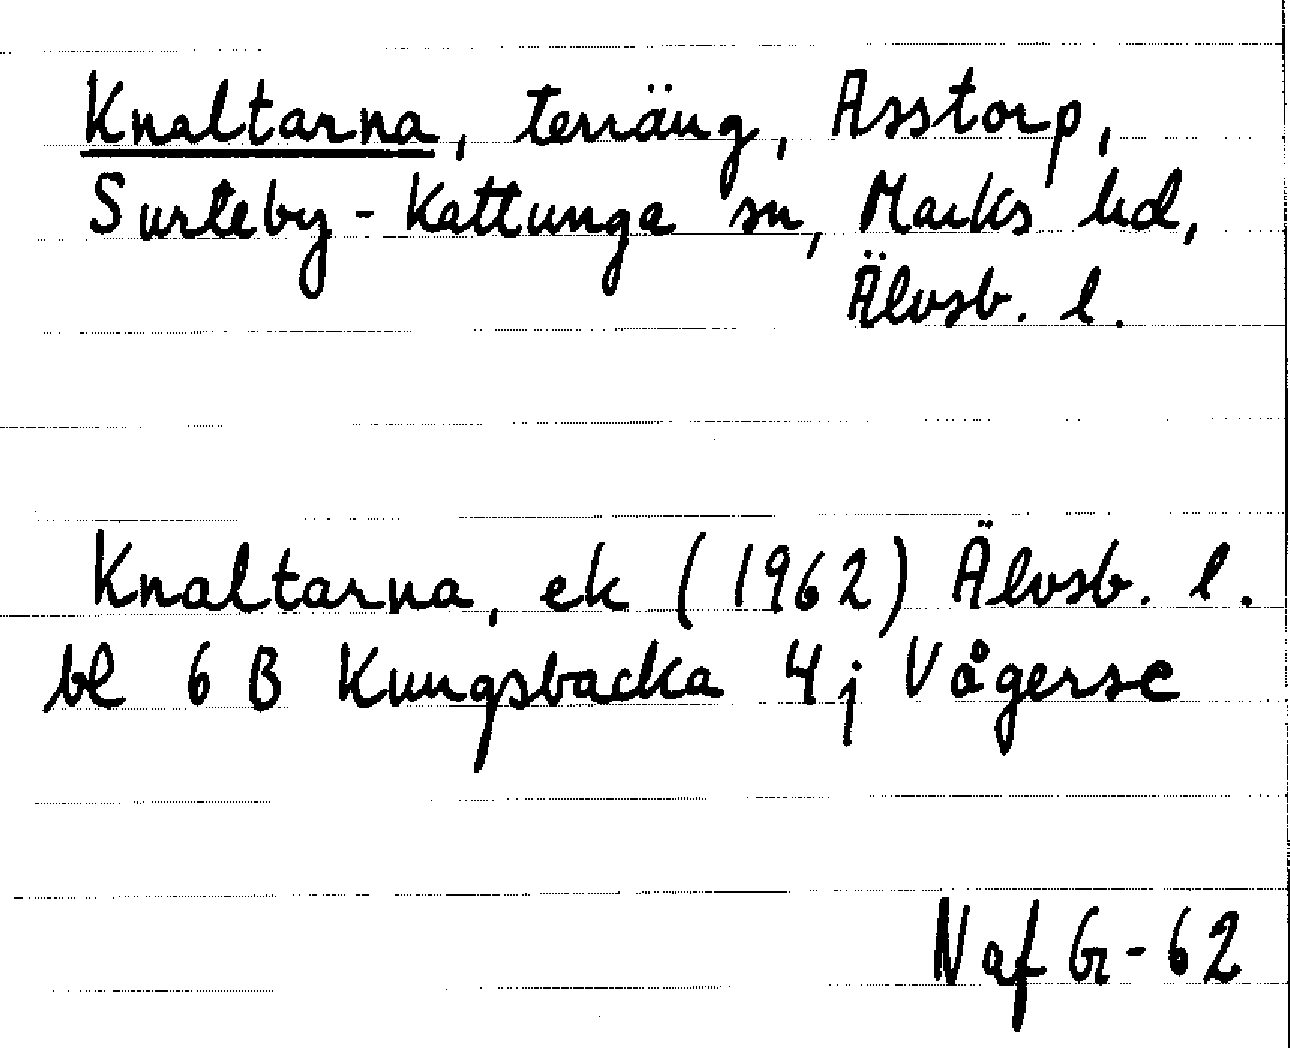 Knaltarna, terräng, Asstorp,
Surteby-Kattunga sn, Marks hd,
Älvsb. l.
Knaltarna, ek (1962) Älvsb. l.
bl 6 B Kungsbacka 4j Vågerse
Naf G-62